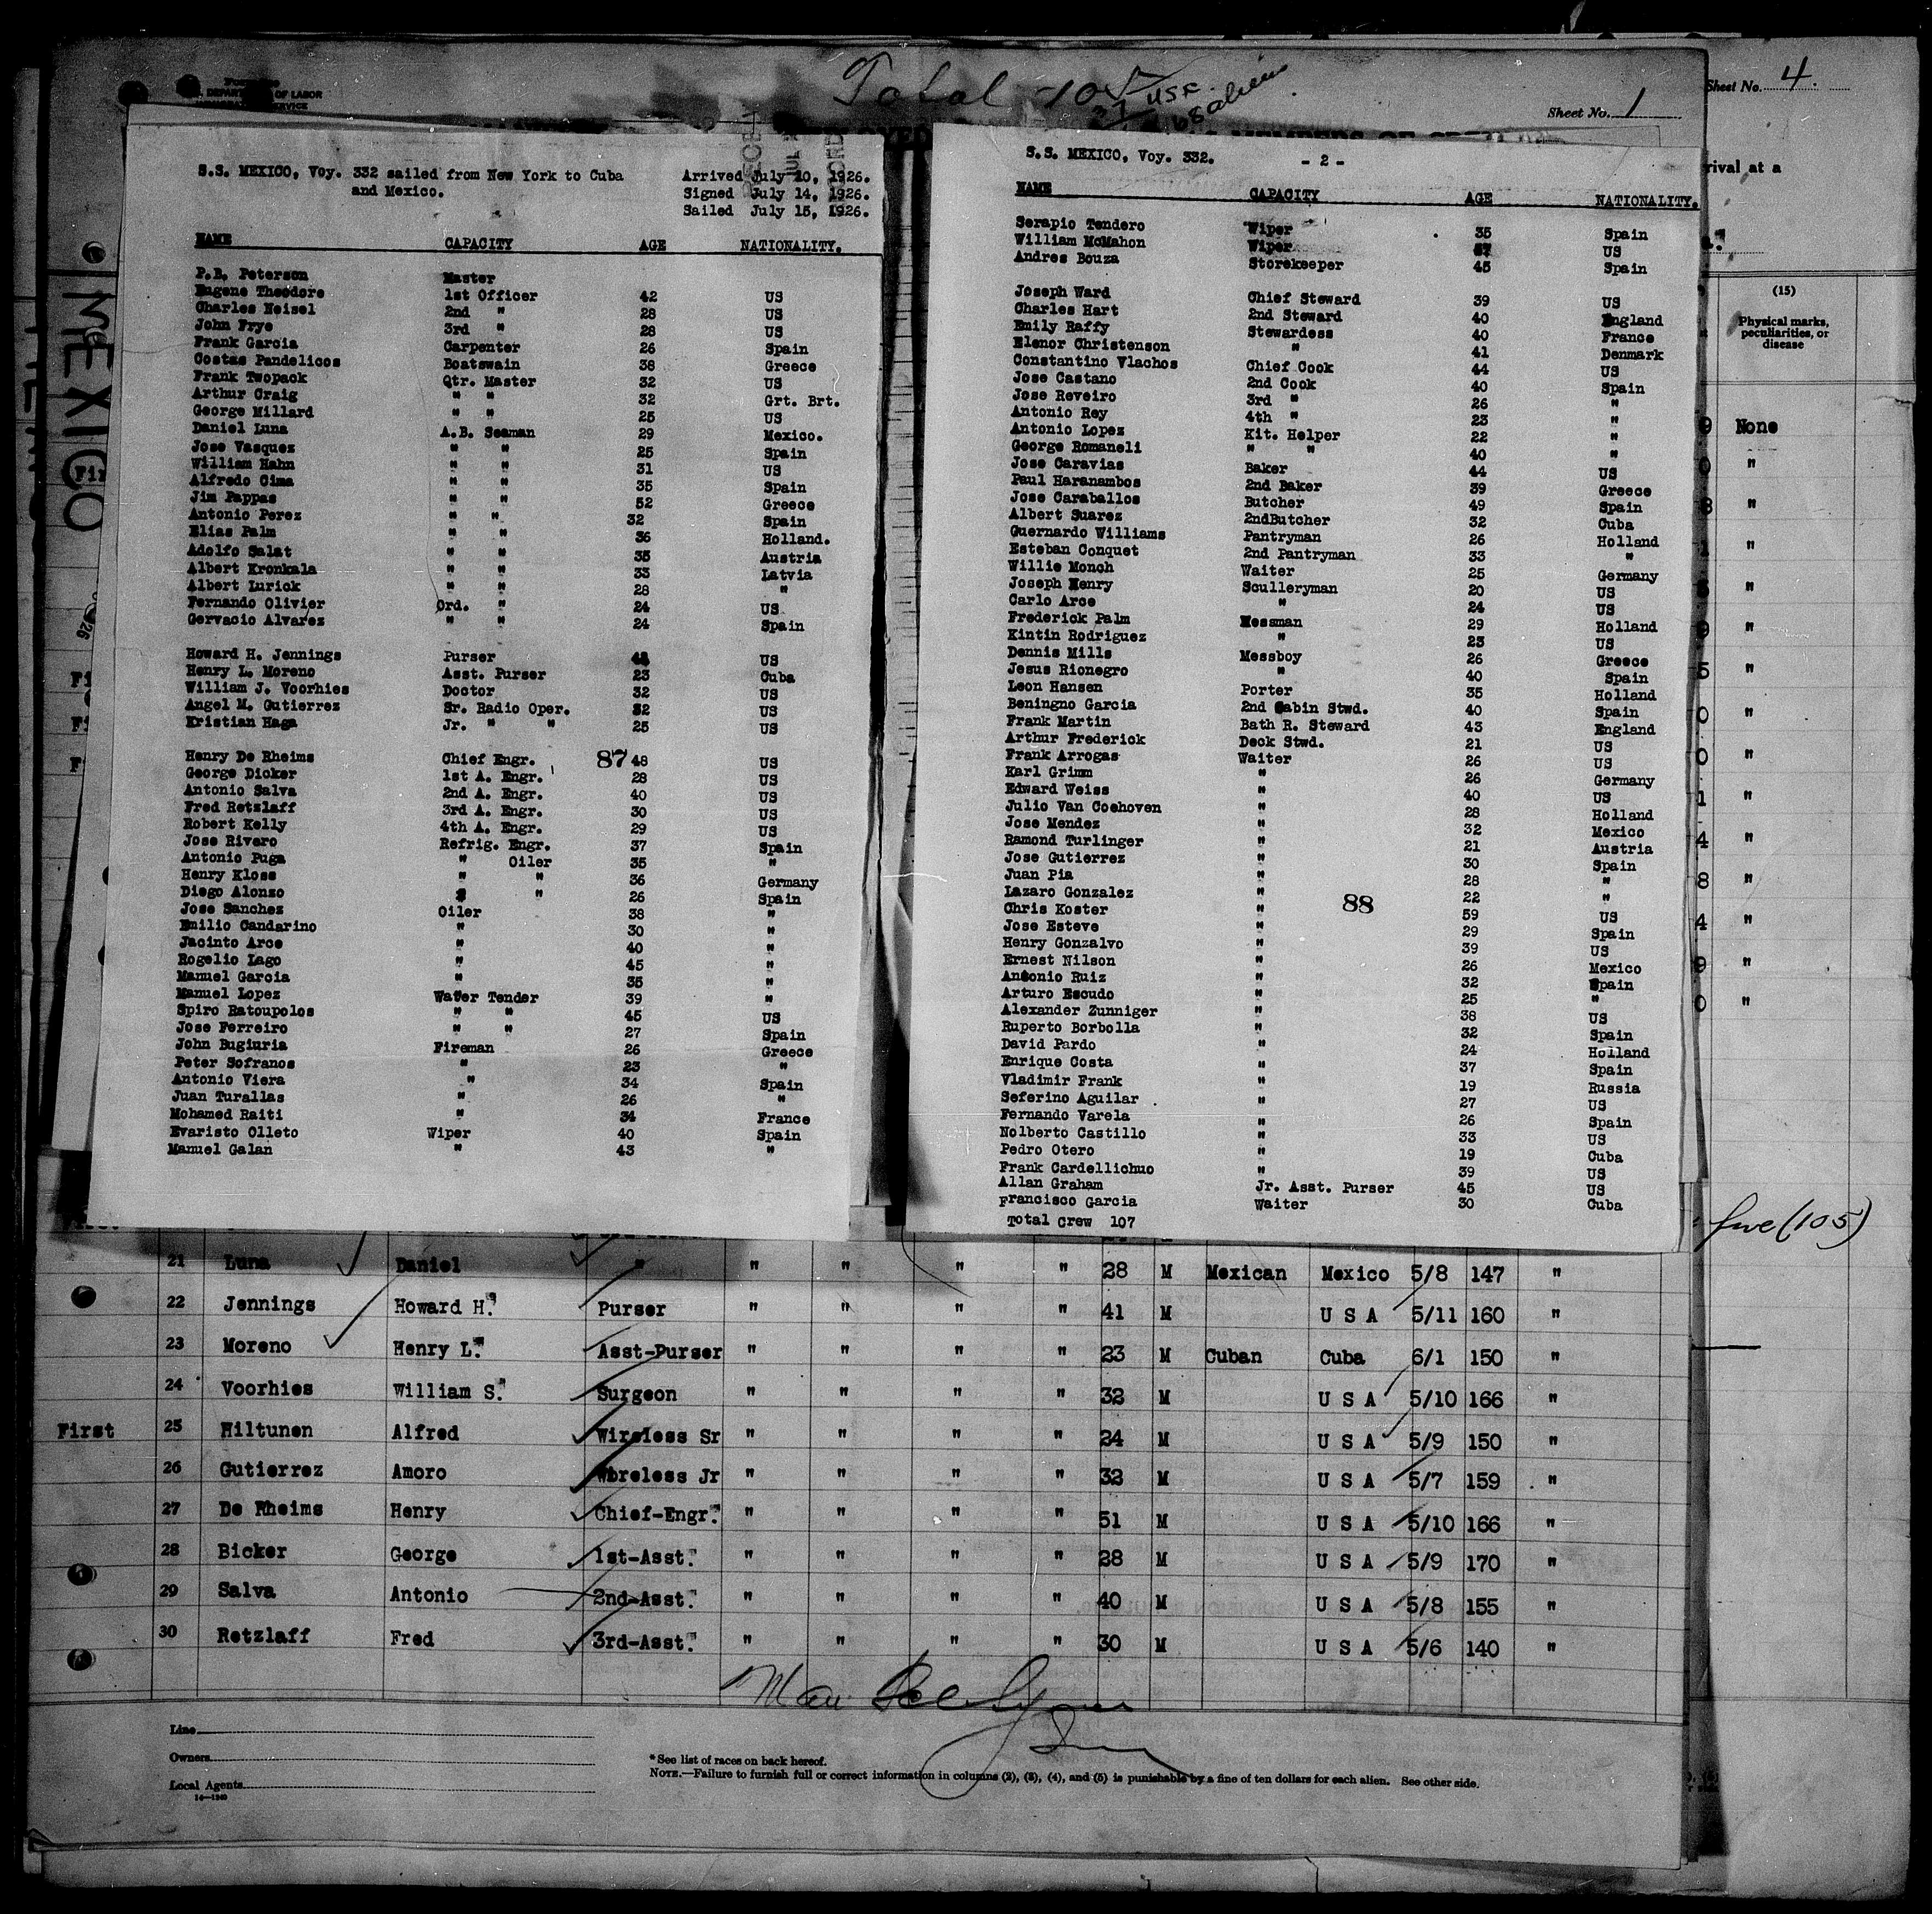 Total 105
27 USC
68 aliens
Sheet No. 1
Sheet No. 4
DEPARTMENT OF LABOR
MEXICO
S.S. MEXICO, Voy. 332 sailed from New York to Cuba and Mexico.
Arrived July 10, 1926.
Signed July 14, 1926.
Sailed July 15, 1926.
NAME CAPACITY AGE NATIONALITY.
P.B. Peterson Master
Eugene Theodore 1st Officer 42 US
Charles Heisel 2nd " 28 US
John Frye 3rd " 28 US
Frank Garcia Carpenter 26 Spain
Costas Pandelicos Boatswain 38 Greece
Frank Twopack Qtr. Master 32 US
Arthur Craig " " 32 Grt. Brt.
George Millard " " 25 US
Daniel Luna A.B. Seaman 29 Mexico.
Jose Vasquez " " 25 Spain
William Hahn " " 31 US
Alfredo Cima " " 35 Spain
Jim Pappas " " 52 Greece
Antonio Perez " " 32 Spain
Elias Palm " " 36 Holland.
Adolfo Salat " " 35 Austria
Albert Kronkala " " 33 Latvia
Albert Lurick " " 28 "
Fernando Olivier Ord. " 24 US
Gervacio Alvarez " " 24 Spain
Howard H. Jennings Purser 42 US
Henry L. Moreno Asst. Purser 23 Cuba
William J. Voorhies Doctor 32 US
Angel M. Gutierrez Sr. Radio Oper. 32 US
Kristian Haga Jr. " " 25 US
87
Henry De Rheims Chief Engr. 48 US
George Dicker 1st A. Engr. 28 US
Antonio Salva 2nd A. Engr. 40 US
Fred Retzlaff 3rd A. Engr. 30 US
Robert Kelly 4th A. Engr. 29 US
Jose Rivero Refrig. Engr. 37 Spain
Antonio Puga " Oiler 35 "
Henry Kloss " " 36 Germany
Diego Alonzo " " 26 Spain
Jose Sanchez Oiler 38 "
Emilio Candarino " 30 "
Jacinto Arce " 40 "
Rogelio Lago " 45 "
Manuel Garcia " 35 "
Manuel Lopez Water Tender 39 "
Spiro Ratoupolos " " 45 US
Jose Ferreiro " " 27 Spain
John Bugiuria Fireman 26 Greece
Peter Sofranos " 23 "
Antonio Viera " 34 Spain
Juan Turallas " 26 "
Mohamed Raiti " 34 France
Evaristo Olleto Wiper 40 Spain
Manuel Galan " 43 "
S.S. MEXICO, Voy. 332. - 2 -
NAME CAPACITY AGE NATIONALITY.
Serapio Tendero Wiper 35 Spain
William McMahon Wiper 37 US
Andres Bouza Storekeeper 45 Spain
Joseph Ward Chief Steward 39 US
Charles Hart 2nd Steward 40 England
Emily Raffy Stewardess 40 France
Elenor Christenson " 41 Denmark
Constantino Vlachos Chief Cook 44 US
Jose Castano 2nd Cook 40 Spain
Jose Reveiro 3rd " 26 "
Antonio Rey 4th " 23 "
Antonio Lopez Kit. Helper 22 "
George Romaneli " " 40 "
Jose Caravias Baker 44 US
Paul Haranambos 2nd Baker 39 Greece
Jose Caraballos Butcher 49 Spain
Albert Suarez 2ndButcher 32 Cuba
Guernardo Williams Pantryman 26 Holland
Esteban Conquet 2nd Pantryman 33 "
Willie Monch Waiter 25 Germany
Joseph Henry Sculleryman 20 US
Carlo Arce " 24 US
Frederick Palm Messman 29 Holland
Kintin Rodriguez " 23 US
Dennis Mills Messboy 26 Greece
Jesus Rionegro " 40 Spain
Leon Hansen Porter 35 Holland
Beningno Garcia 2nd Cabin Stwd. 40 Spain
Frank Martin Bath R. Steward 43 England
Arthur Frederick Deck Stwd. 21 US
Frank Arrogas Waiter 26 US
Karl Grimm " 26 Germany
Edward Weiss " 40 US
Julio Van Coehoven " 28 Holland
Jose Mendez " 32 Mexico
Ramond Turlinger " 21 Austria
Jose Gutierrez " 30 Spain
Juan Pia " 28 "
Lazaro Gonzalez " 22 "
88
Chris Koster " 59 US
Jose Esteve " 29 Spain
Henry Gonzalvo " 39 US
Ernest Nilson " 26 Mexico
Antonio Ruiz " 32 Spain
Arturo Escudo " 25 "
Alexander Zunniger " 38 US
Ruperto Borbolla " 32 Spain
David Pardo " 24 Holland
Enrique Costa " 37 Spain
Vladimir Frank " 19 Russia
Seferino Aguilar " 27 US
Fernando Varela " 26 Spain
Nolberto Castillo " 33 US
Pedro Otero " 19 Cuba
Frank Cardellichuo " 39 US
Allan Graham Jr. Asst. Purser 45 US
Francisco Garcia Waiter 30 Cuba
Total Crew 107
rival at a
(15)
Physical marks, peculiarities, or disease
None
five (105)
21 Luna Daniel " " " " " 28 M Mexican Mexico 5/8 147 "
22 Jennings Howard H. Purser " " " " 41 M U S A 5/11 160 "
23 Moreno Henry L. Asst-Purser " " " " 23 M Cuban Cuba 6/1 150 "
24 Voorhies William S. Surgeon " " " " 32 M U S A 5/10 166 "
First 25 Hiltunen Alfred Wireless Sr " " " " 24 M U S A 5/9 150 "
26 Gutierrez Amoro Wireless Jr " " " " 32 M U S A 5/7 159 "
27 De Rheims Henry Chief-Engr. " " " " 51 M U S A 5/10 166 "
28 Bicker George 1st-Asst. " " " " 28 M U S A 5/9 170 "
29 Salva Antonio 2nd-Asst. " " " " 40 M U S A 5/8 155 "
30 Retzlaff Fred 3rd-Asst. " " " " 30 M U S A 5/6 140 "
Line
Owners
Local Agents
14—1240
* See list of races on back hereof.
NOTE.—Failure to furnish full or correct information in columns (2), (3), (4), and (5) is punishable by a fine of ten dollars for each alien. See other side.